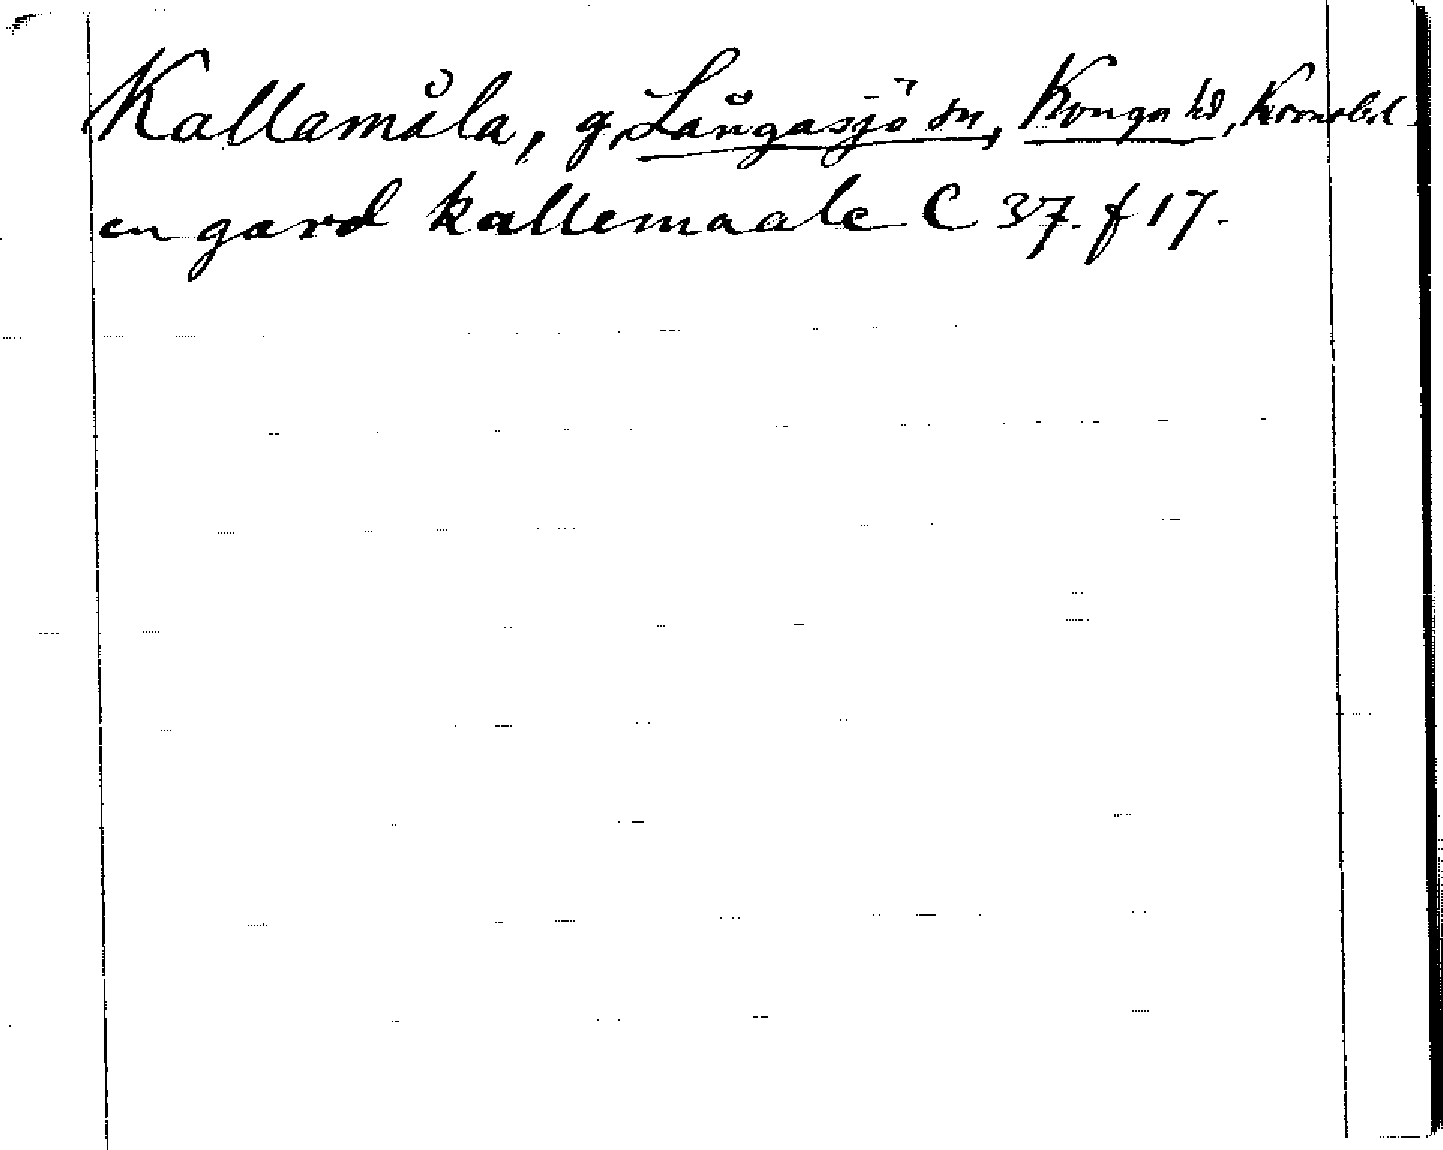 Kallamåla, g, Långasjö sn, Konga hd, Kronob.l.
en gard kallemaale C 37. f 17.